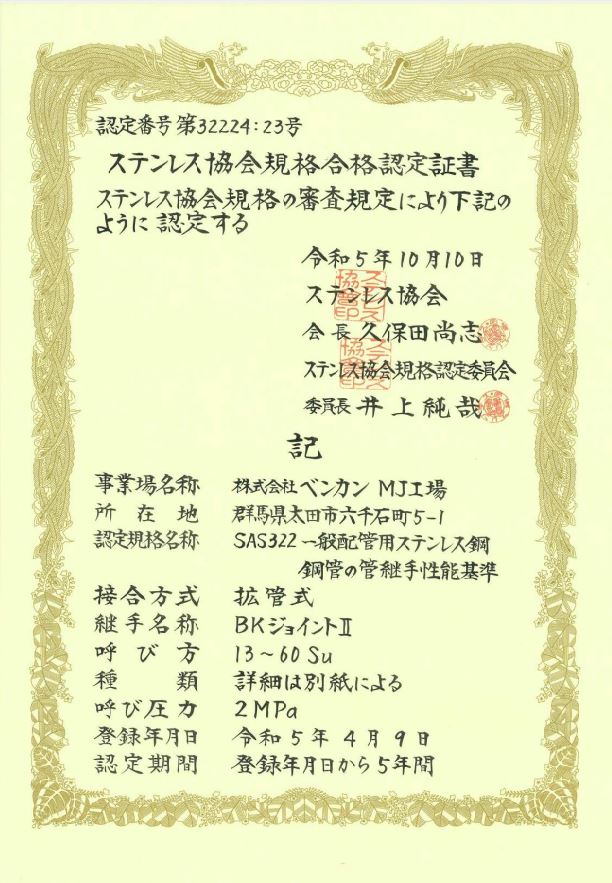 認定番号第32224:23号
ステンレス協会規格合格認定証書
ステンレス協会規格の審査規定により下記の
ように認定する
令和5年10月10日
ステンレス協会
会長 久保田尚志
ステンレス協会規格認定委員会
委員長 井上純哉
記
事業場名称 株式会社ベンカン MJ工場
所在地 群馬県太田市六千石町5-1
認定規格名称 SAS322 一般配管用ステンレス鋼
鋼管の管継手性能基準
接合方式 拡管式
継手名称 BKジョイントⅡ
呼び方 13~60Su
種類 詳細は別紙による
呼び圧力 2MPa
登録年月日 令和5年4月9日
認定期間 登録年月日から5年間